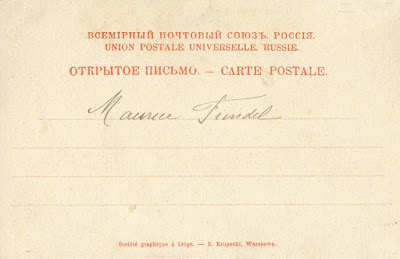 ВСЕМІРНЫЙ ПОЧТОВЫЙ СОЮЗЪ. РОССІЯ.
UNION POSTALE UNIVERSELLE. RUSSIE.
ОТКРЫТОЕ ПИСЬМО. — CARTE POSTALE.
Maurice
Société graphique à Liège. — S. Krupecki, Warszawa.